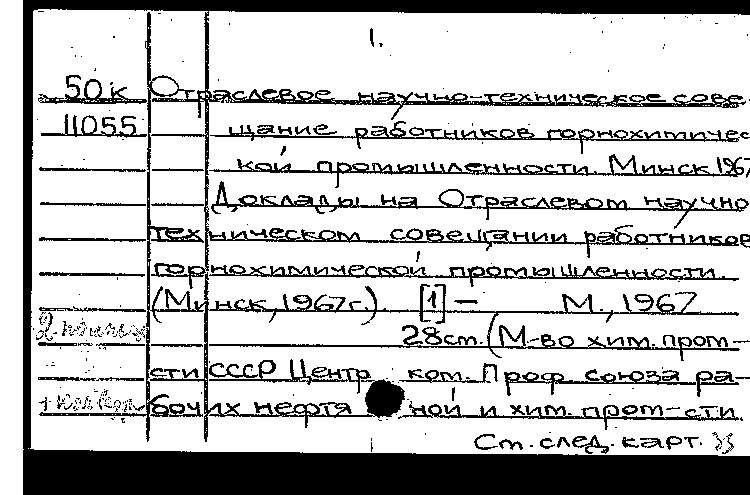 1.
50к Отраслевое научно-техническое сове-
11055 щание работников горнохимичес
кой промышленности. Минск 1967
Доклады на Отраслевом научно
техническом совещании работников
горнохимической промышленности.
(Минск, 1967г.). [1] – М., 1967
28ст. (М-во хим. пром-
сти СССР Центр ком. Проф. союза ра-
бочих нефтя ной и хим. пром-сти.
Ст. след. карт.